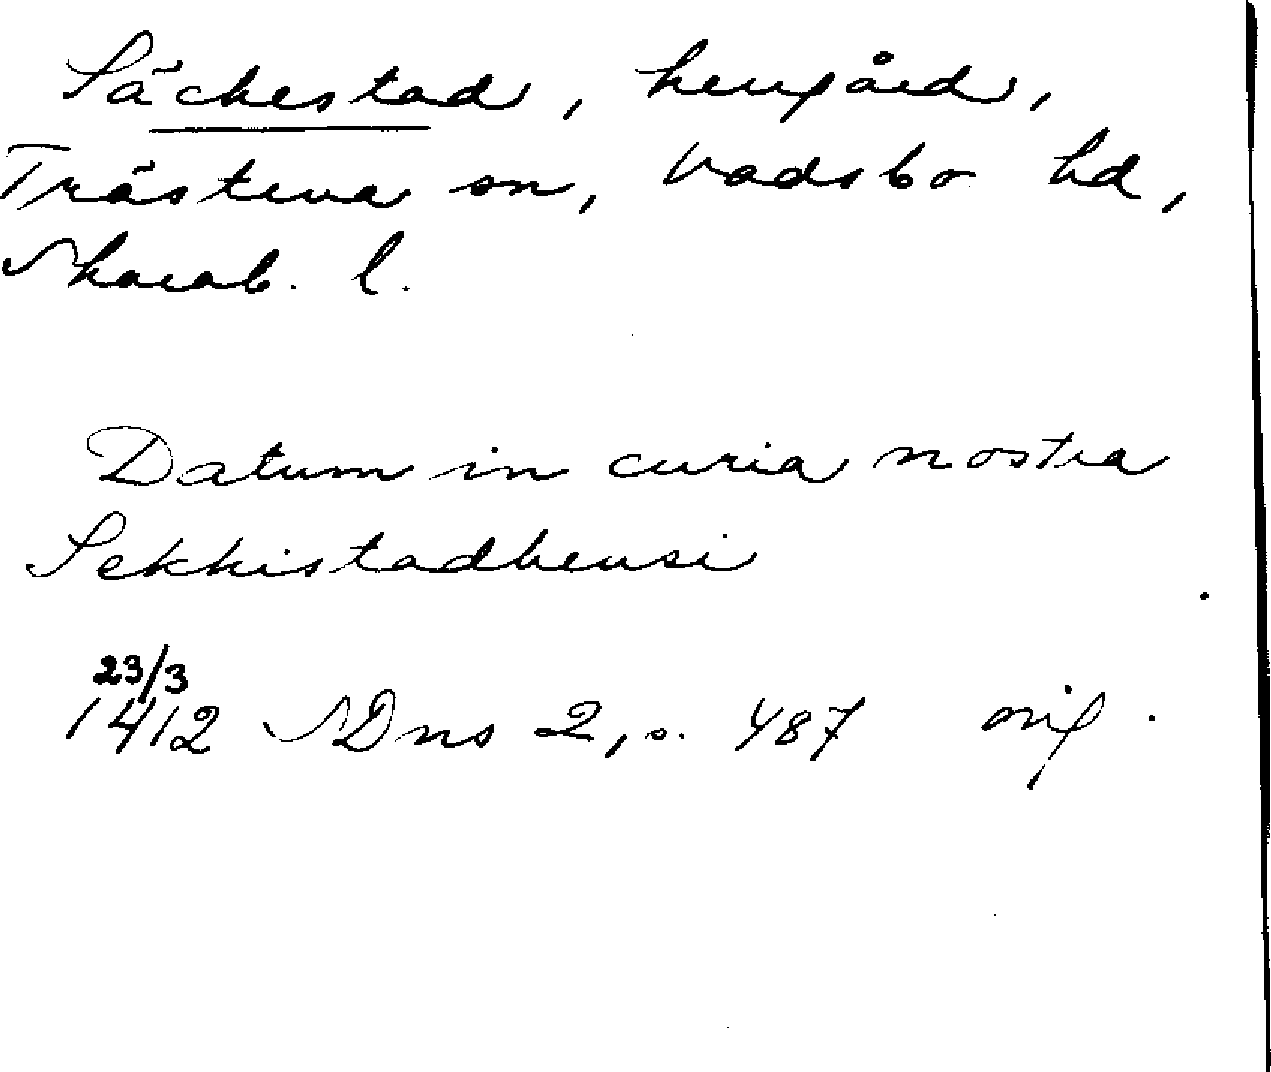 Säckestad, herrgård,
Trästena sn, Vadsbo hd,
Skarab. l.
Datum in curia nostra
Sekkistadhensi
23/3
1412 SDns 2, s. 487 orig.